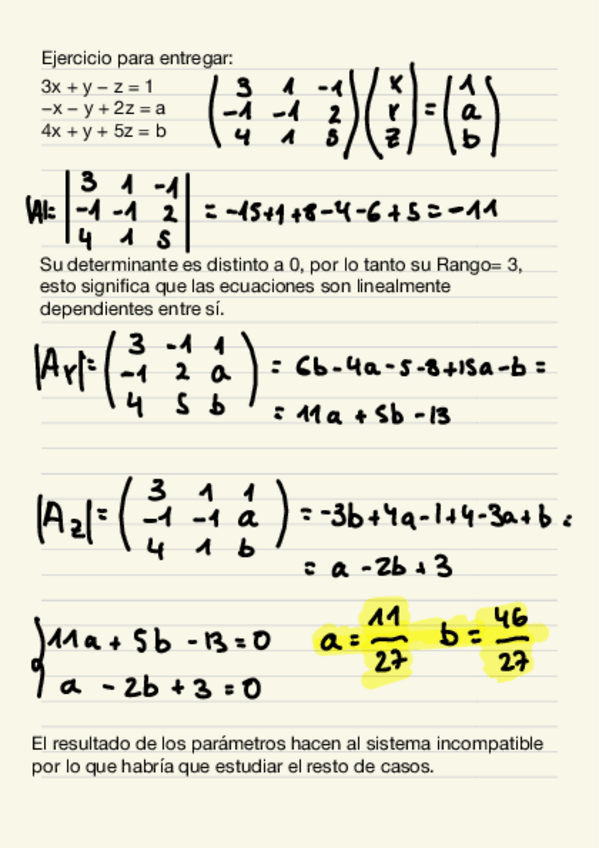 Ejercicio para entregar:
3x + y − z = 1
−x − y + 2z = a
4x + y + 5z = b
( 3 1 -1 ) ( x ) = ( 1 )
( -1 -1 2 ) ( Y ) = ( a )
( 4 1 5 ) ( z ) = ( b )
|A|= | 3 1 -1 |
| -1 -1 2 | = -15+1+8-4-6+5 = -11
| 4 1 5 |
Su determinante es distinto a 0, por lo tanto su Rango= 3,
esto significa que las ecuaciones son linealmente
dependientes entre sí.
|Ay|= ( 3 -1 1 )
( -1 2 a ) = 6b-4a-5-8+15a-b =
( 4 5 b ) = 11a + 5b -13
|Az|= ( 3 1 1 )
( -1 -1 a ) = -3b+4a-1+4-3a+b =
( 4 1 b ) = a - 2b + 3
11a + 5b - 13 = 0
a - 2b + 3 = 0
a = 11/27 b = 46/27
El resultado de los parámetros hacen al sistema incompatible
por lo que habría que estudiar el resto de casos.